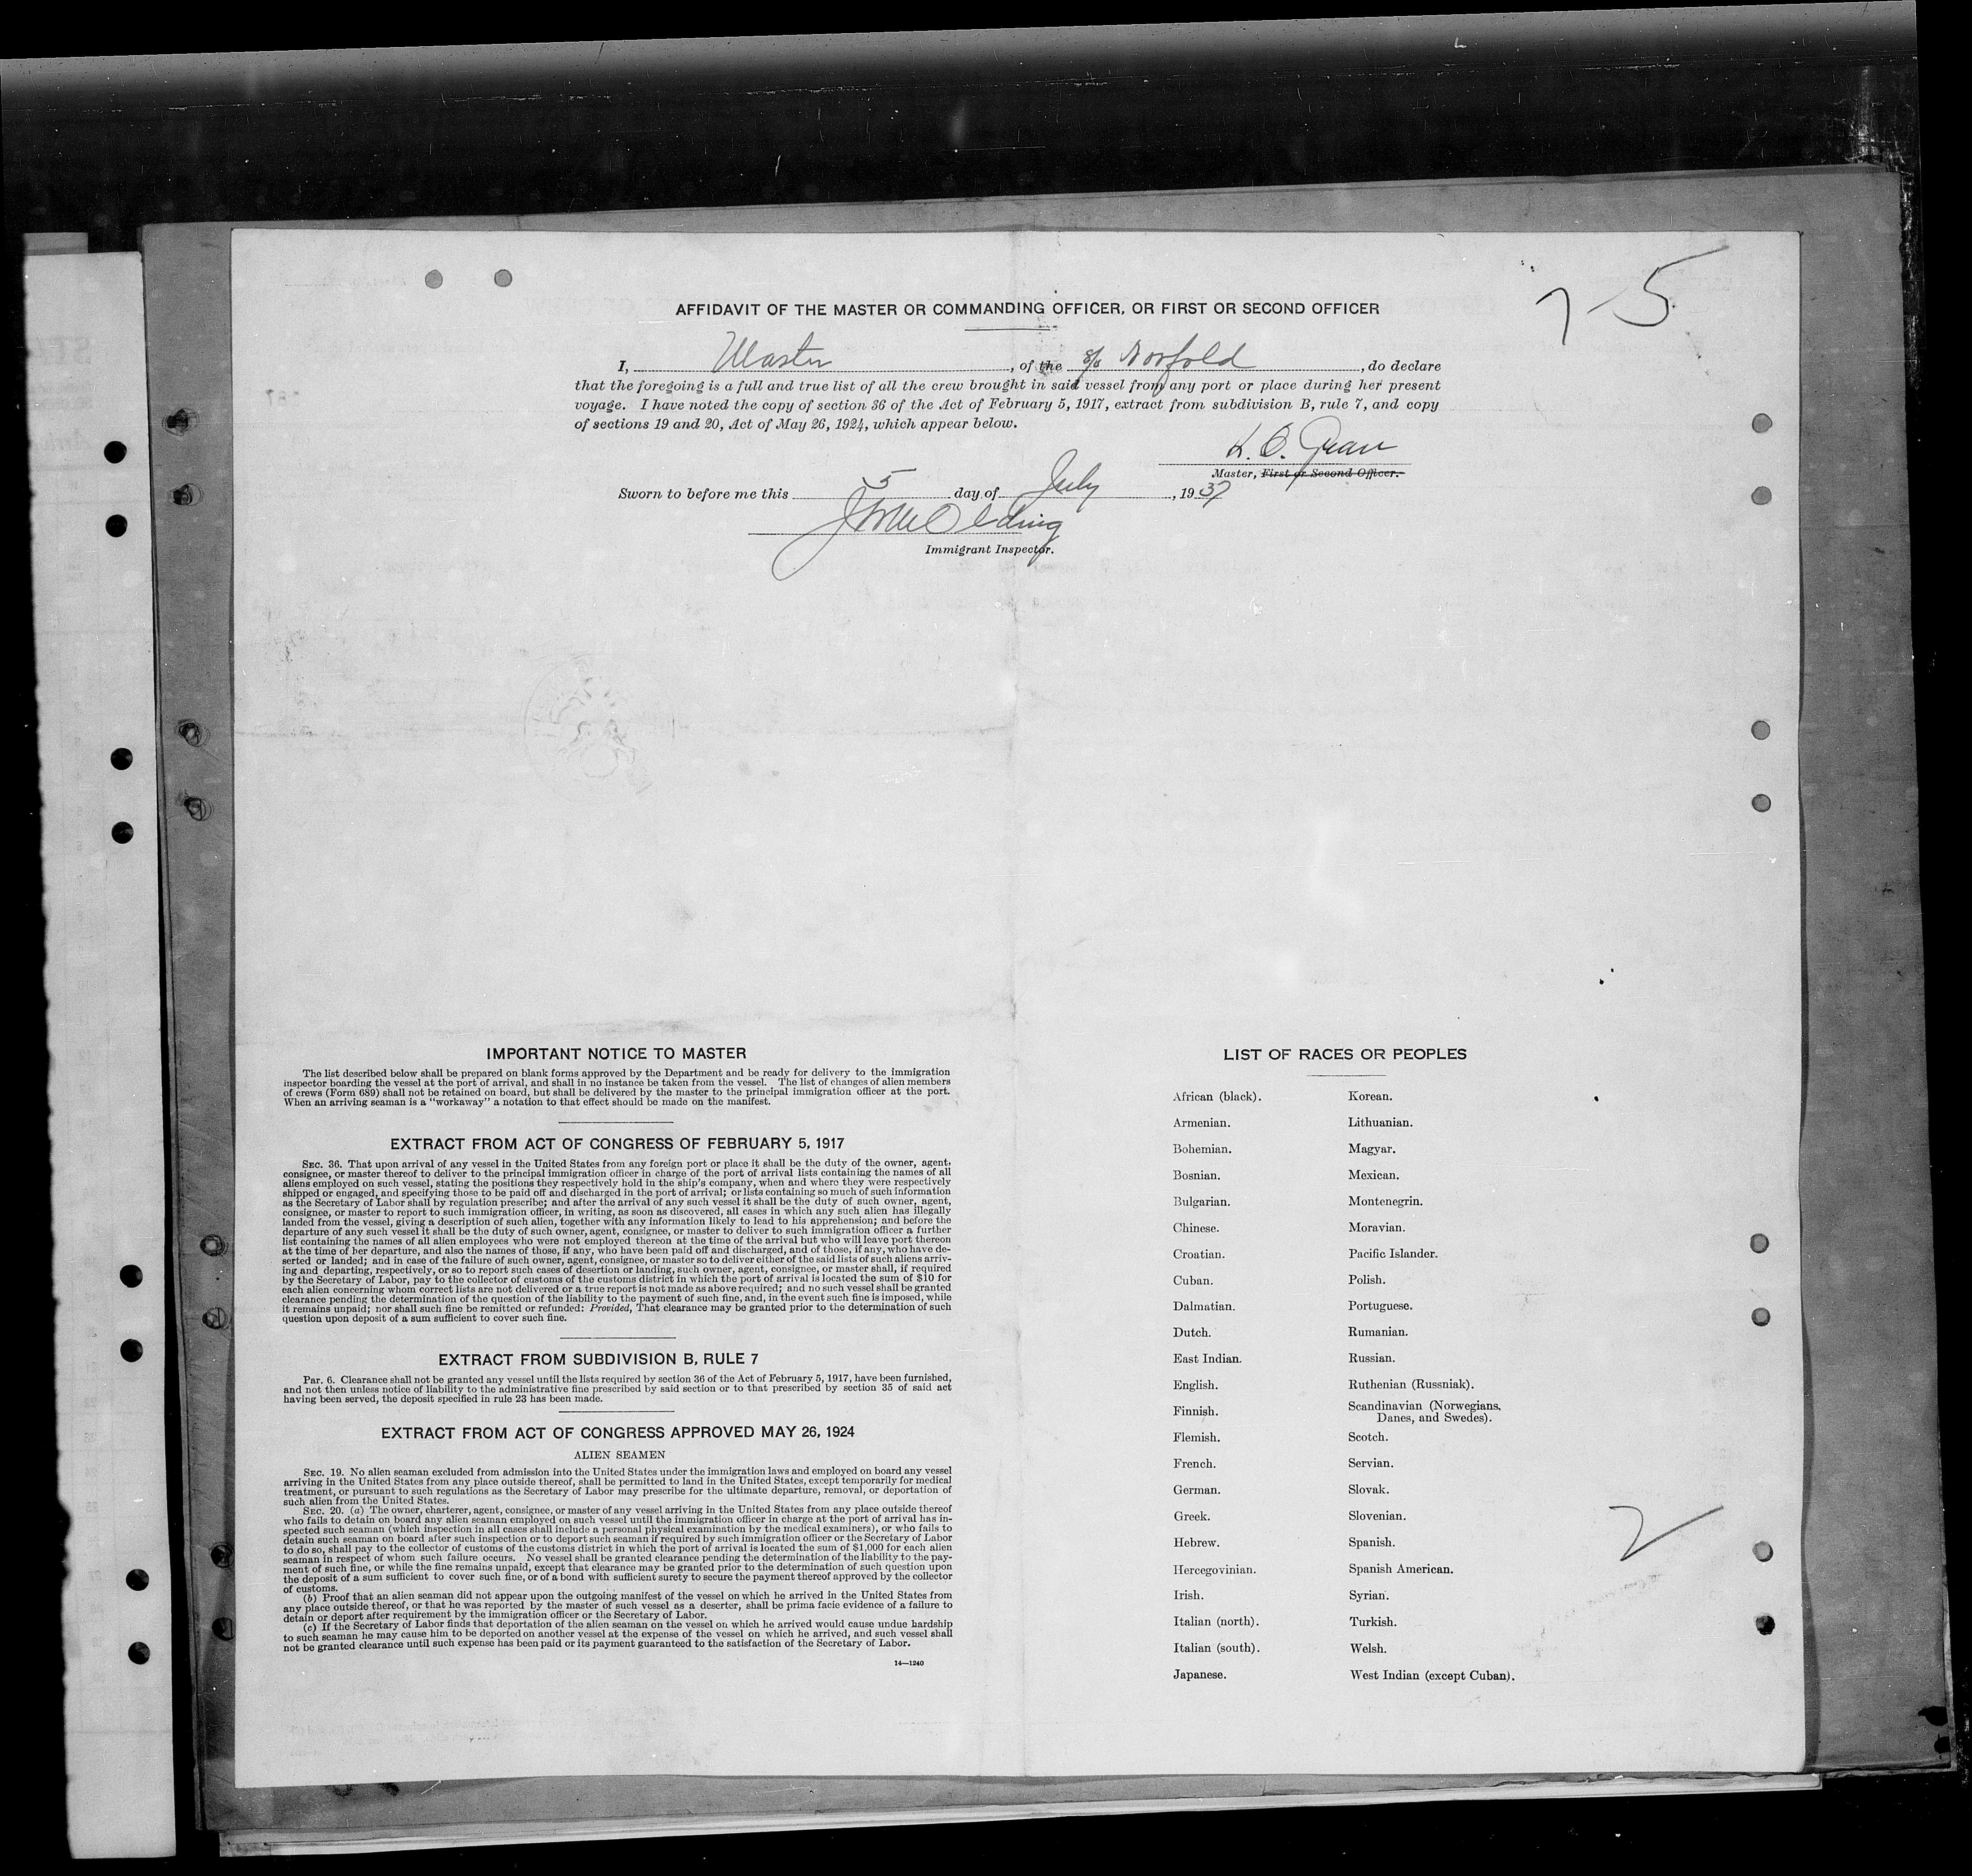 7-5
AFFIDAVIT OF THE MASTER OR COMMANDING OFFICER, OR FIRST OR SECOND OFFICER
I, Master, of the s/s Norfold, do declare
that the foregoing is a full and true list of all the crew brought in said vessel from any port or place during her present
voyage. I have noted the copy of section 36 of the Act of February 5, 1917, extract from subdivision B, rule 7, and copy
of sections 19 and 20, Act of May 26, 1924, which appear below.
K. O.
Master, First or Second Officer.
Sworn to before me this 5 day of July, 1937
Immigrant Inspector.
IMPORTANT NOTICE TO MASTER
The list described below shall be prepared on blank forms approved by the Department and be ready for delivery to the immigration
inspector boarding the vessel at the port of arrival, and shall in no instance be taken from the vessel. The list of changes of alien members
of crews (Form 689) shall not be retained on board, but shall be delivered by the master to the principal immigration officer at the port.
When an arriving seaman is a "workaway" a notation to that effect should be made on the manifest.
EXTRACT FROM ACT OF CONGRESS OF FEBRUARY 5, 1917
SEC. 36. That upon arrival of any vessel in the United States from any foreign port or place it shall be the duty of the owner, agent,
consignee, or master thereof to deliver to the principal immigration officer in charge of the port of arrival lists containing the names of all
aliens employed on such vessel, stating the positions they respectively hold in the ship's company, when and where they were respectively
shipped or engaged, and specifying those to be paid off and discharged in the port of arrival; or lists containing so much of such information
as the Secretary of Labor shall by regulation prescribe; and after the arrival of any such vessel it shall be the duty of such owner, agent,
consignee, or master to report to such immigration officer, in writing, as soon as discovered, all cases in which any such alien has illegally
landed from the vessel, giving a description of such alien, together with any information likely to lead to his apprehension; and before the
departure of any such vessel it shall be the duty of such owner, agent, consignee, or master to deliver to such immigration officer a further
list containing the names of all alien employees who were not employed thereon at the time of the arrival but who will leave port thereon
at the time of her departure, and also the names of those, if any, who have been paid off and discharged, and of those, if any, who have de-
serted or landed; and in case of the failure of such owner, agent, consignee, or master so to deliver either of the said lists of such aliens arriv-
ing and departing, respectively, or so to report such cases of desertion or landing, such owner, agent, consignee, or master shall, if required
by the Secretary of Labor, pay to the collector of customs of the customs district in which the port of arrival is located the sum of $10 for
each alien concerning whom correct lists are not delivered or a true report is not made as above required; and no such vessel shall be granted
clearance pending the determination of the question of the liability to the payment of such fine, and, in the event such fine is imposed, while
it remains unpaid; nor shall such fine be remitted or refunded: Provided, That clearance may be granted prior to the determination of such
question upon deposit of a sum sufficient to cover such fine.
EXTRACT FROM SUBDIVISION B, RULE 7
PAR. 6. Clearance shall not be granted any vessel until the lists required by section 36 of the Act of February 5, 1917, have been furnished,
and not then unless notice of liability to the administrative fine prescribed by said section or to that prescribed by section 35 of said act
having been served, the deposit specified in rule 23 has been made.
EXTRACT FROM ACT OF CONGRESS APPROVED MAY 26, 1924
ALIEN SEAMEN
SEC. 19. No alien seaman excluded from admission into the United States under the immigration laws and employed on board any vessel
arriving in the United States from any place outside thereof, shall be permitted to land in the United States, except temporarily for medical
treatment, or pursuant to such regulations as the Secretary of Labor may prescribe for the ultimate departure, removal, or deportation of
such alien from the United States.
SEC. 20. (a) The owner, charterer, agent, consignee, or master of any vessel arriving in the United States from any place outside thereof
who fails to detain on board any alien seaman employed on such vessel until the immigration officer in charge at the port of arrival has in-
spected such seaman (which inspection in all cases shall include a personal physical examination by the medical examiners), or who fails to
detain such seaman on board after such inspection or to deport such seaman if required by such immigration officer or the Secretary of Labor
to do so, shall pay to the collector of customs of the customs district in which the port of arrival is located the sum of $1,000 for each alien
seaman in respect of whom such failure occurs. No vessel shall be granted clearance pending the determination of the liability to the pay-
ment of such fine, or while the fine remains unpaid, except that clearance may be granted prior to the determination of such question upon
the deposit of a sum sufficient to cover such fine, or of a bond with sufficient surety to secure the payment thereof approved by the collector
of customs.
(b) Proof that an alien seaman did not appear upon the outgoing manifest of the vessel on which he arrived in the United States from
any place outside thereof, or that he was reported by the master of such vessel as a deserter, shall be prima facie evidence of a failure to
detain or deport after requirement by the immigration officer or the Secretary of Labor.
(c) If the Secretary of Labor finds that deportation of the alien seaman on the vessel on which he arrived would cause undue hardship
to such seaman he may cause him to be deported on another vessel at the expense of the vessel on which he arrived, and such vessel shall
not be granted clearance until such expense has been paid or its payment guaranteed to the satisfaction of the Secretary of Labor.
14—1240
LIST OF RACES OR PEOPLES
African (black).
Armenian.
Bohemian.
Bosnian.
Bulgarian.
Chinese.
Croatian.
Cuban.
Dalmatian.
Dutch.
East Indian.
English.
Finnish.
Flemish.
French.
German.
Greek.
Hebrew.
Hercegovinian.
Irish.
Italian (north).
Italian (south).
Japanese.
Korean.
Lithuanian.
Magyar.
Mexican.
Montenegrin.
Moravian.
Pacific Islander.
Polish.
Portuguese.
Rumanian.
Russian.
Ruthenian (Russniak).
Scandinavian (Norwegians,
Danes, and Swedes).
Scotch.
Servian.
Slovak.
Slovenian.
Spanish.
Spanish American.
Syrian.
Turkish.
Welsh.
West Indian (except Cuban).
2